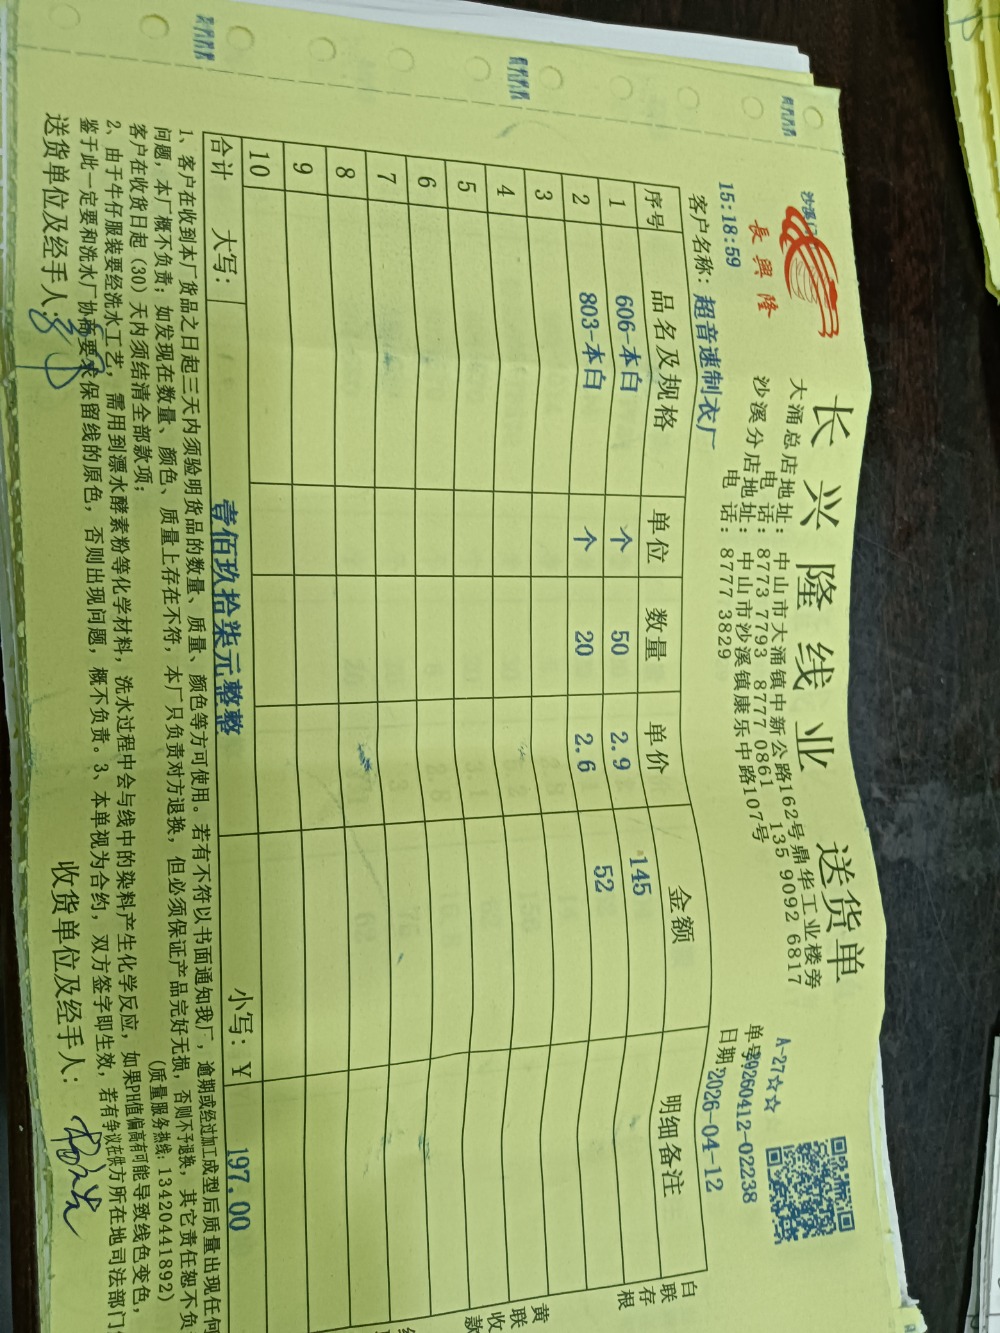 長興隆
长兴隆线业 送货单
大涌总店地址：中山市大涌镇中新公路162号鼎华工业楼旁
电 话：8773 7793 8777 0861 135 9092 6817
沙溪分店地址：中山市沙溪镇康乐中路107号
电 话：8777 3829
A-27☆☆
单号:20260412-02238
日期:2026-04-12
15:18:59
客户名称：超音速制衣厂
序号 品名及规格 单位 数量 单价 金额 明细备注
1 606-本白 个 50 2.9 145
2 803-本白 个 20 2.6 52
3
4
5
6
7
8
9
10
合计 大写： 壹佰玖拾柒元整整 小写：￥ 197.00
白联存根
黄联收款
1、客户在收到本厂货品之日起三天内须验明货品的数量、质量、颜色等方可使用。若有不符以书面通知我厂，逾期或经过加工成型后质量出现任何
问题，本厂概不负责；如发现在数量、颜色、质量上存在不符，本厂只负责对方退换，但必须保证产品完好无损，否则不予退换，其它责任恕不负
客户在收货日起（30）天内须结清全部款项；
(质量服务热线：13420441892)
2、由于牛仔服装要经洗水工艺，需用到漂水酵素粉等化学材料，洗水过程中会与线中的染料产生化学反应，如果PH值偏高有可能导致线色变色，
鉴于此一定要和洗水厂协商要求保留线的原色，否则出现问题，概不负责。3、本单视为合约，双方签字即生效，若有争议在供方所在地司法部门
送货单位及经手人： 收货单位及经手人：